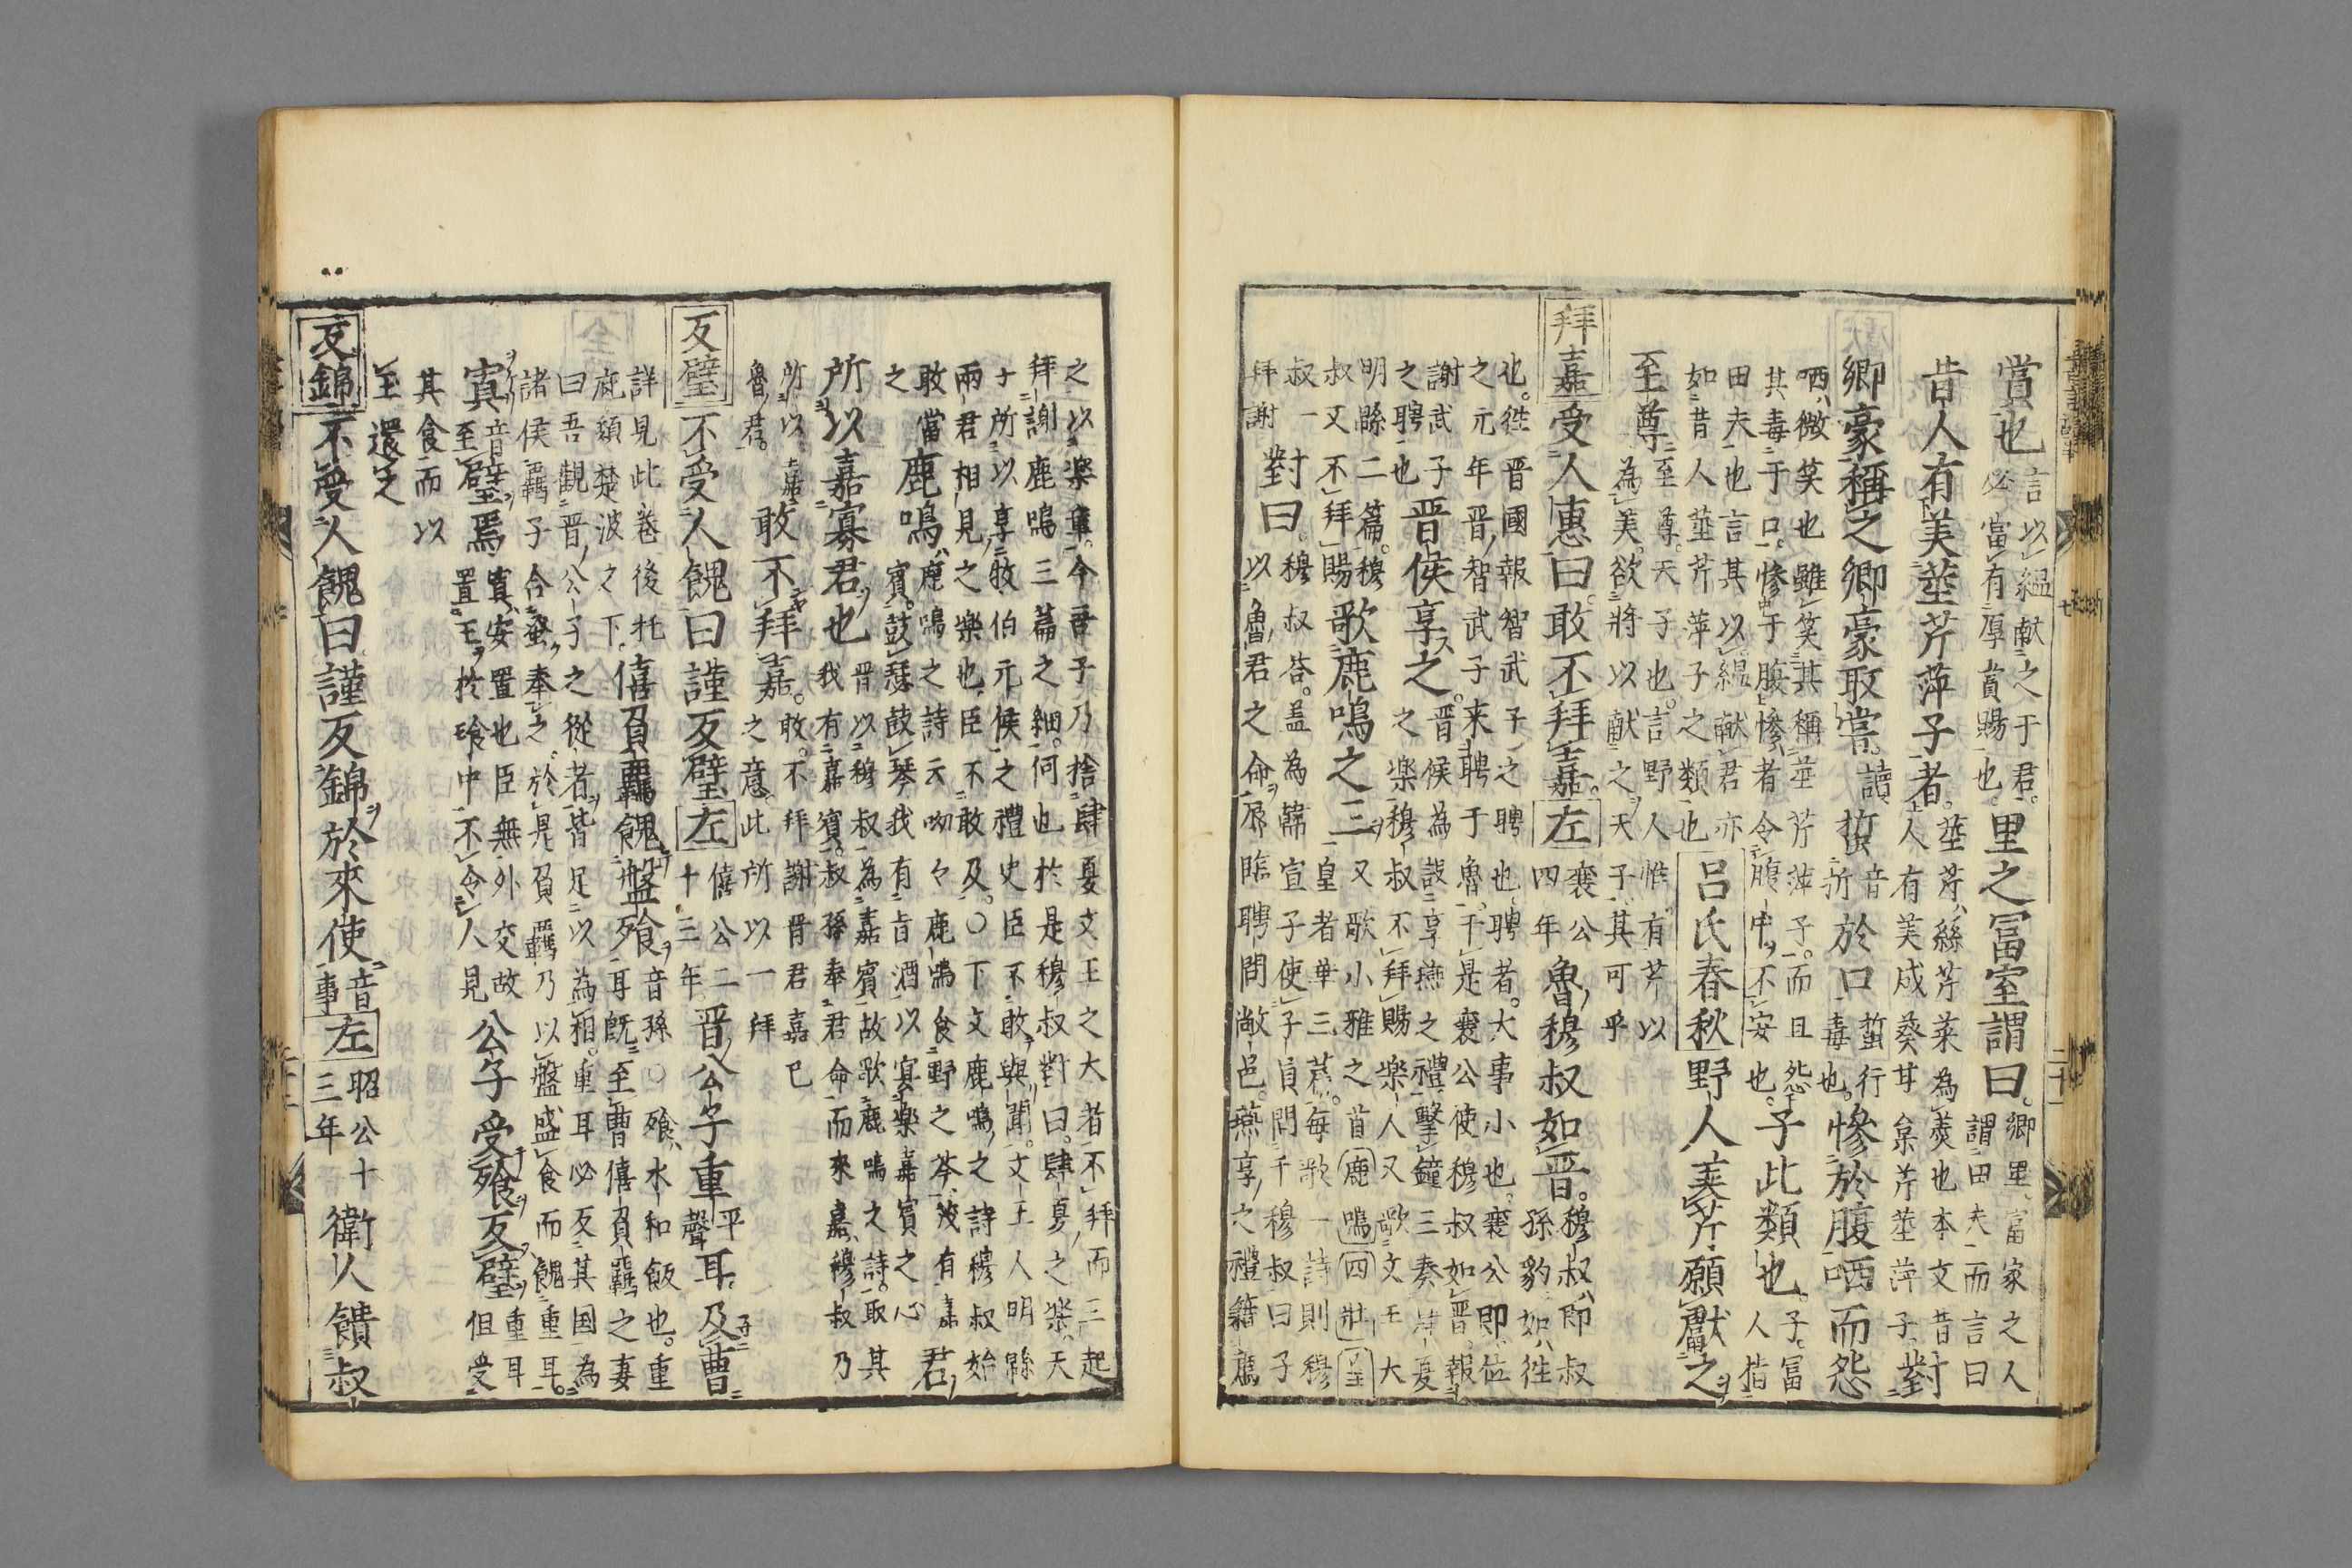 賞也言以縕献之于君必當有厚賞賜也里之冨室謂曰鄉里富家之人謂田夫而言曰
昔人有美莖芹萍子者莖芹絲芹菜為羮也本文昔人有美戍葵甘枲芹莖萍子對
鄉豪稱之鄉豪取嘗讀蜇音折於口蜇行毒也慘於腹哂而怨
哂微笑也雖笑其稱莖芹萍子而且怨其毒于口慘于腹慘者令腹中不安也子此類也子冨人指
田夫也言其以縕献君亦如昔人莖芹萍子之類也呂氏春秋野人美芹願獻之
至尊至尊天子也言野人惟有芹以為美欲將以献之天子其可乎
拜嘉受人惠曰敢不拜嘉左襄公四年魯穆叔如晋穆叔即叔孫豹如徃
也徃晋國報智武子之聘也聘者大事小也襄公即位之元年晋智武子来聘于魯于是襄公使穆叔如晋報
謝武子之聘也晋侯享之晋侯為設享燕之禮擊鐘三奏肆夏之楽穆叔不拜賜楽人又歌文王大
明緜二篇穆叔又不拜賜歌鹿鳴之三又歌小雅之首鹿鳴四牡皇皇者華三篇每歌一詩則穆
叔一拜謝對曰穆叔答盖為韓宣子使子員問于穆叔曰子以魯君之命辰臨聘問敝邑燕享之禮籍薦
之以楽章今吾子乃捨肆夏文王之大者不拜而三起
拜謝鹿鳴三篇之細何也於是穆叔對曰肆夏之楽天
子所以享牧伯元侯之禮史臣不敢與聞文王人明緜
兩君相見之楽也臣不敢及〇下文鹿鳴之詩穆叔始
敢當之鹿鳴鹿鳴之詩云呦々鹿鳴食野之芩我有嘉賓鼓瑟鼓琴我有旨酒以宴楽嘉賓之心君
所以嘉寡君也晋以穆叔為嘉賓故歌鹿鳴之詩取其我有嘉賓叔孫奉君命而来嘉穆叔乃
所以嘉魯君敢不拜嘉敢不拜謝晋君嘉已之意此所以一拜
反璧不受人餽曰謹反璧左僖公二十三年晋公子重平聲耳及曹
詳見此卷後牝疵類楚波之下僖負羈餽盤飱音孫〇飱水和飯也重耳既至曹僖負羈之妻
曰吾觀晋公子之從者皆足以為相重耳必反其国為諸侯羈子合蚤奉之於是負羈乃以盤盛食而餽重耳
寘音至璧焉寘安置也臣無外交故置玉於飱中不令人見公子受飱反璧重耳但受
其食而以玉還之
反錦不受人餽曰謹反錦於來使音事左昭公十三年衛人饋叔